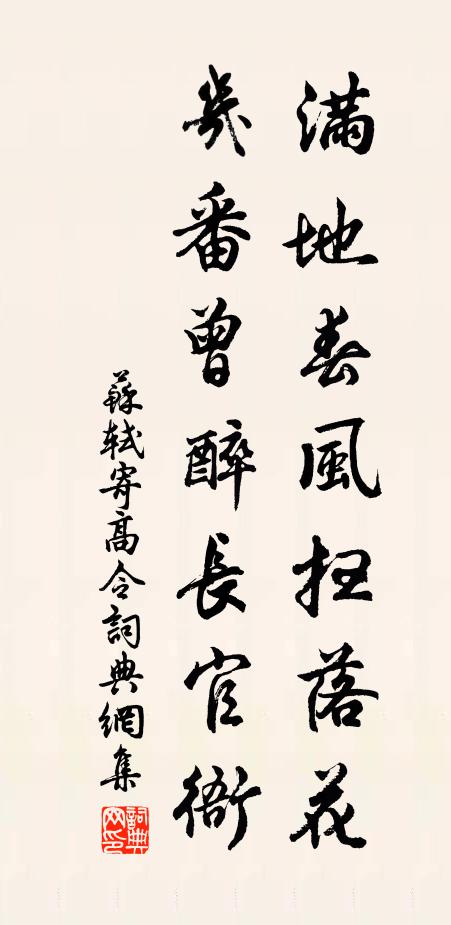 滿地春風掃落花
幾番曾醉長官衙
蘇軾寄高令詞典網集
詞典網印